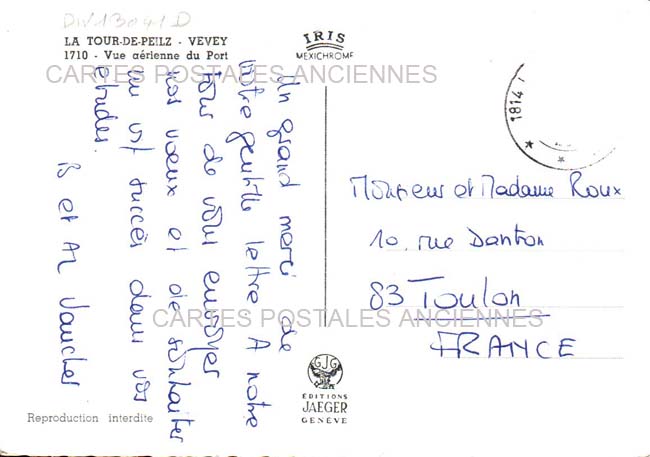 DIV13041D
LA TOUR-DE-PEILZ - VEVEY
1710 - Vue aérienne du Port
IRIS
MEXICHROME
CARTES POSTALES ANCIENNES
1814
Un grand merci de
votre gentille lettre A notre
tour de vous envoyer
nos vœux et de souhaiter
un vif succès dans vos
etudes.
et Vaucher
Monsieur et Madame Roux
10, rue Danton
83 Toulon
FRANCE
CARTES POSTALES ANCIENNES
GJG
EDITIONS
JAEGER
GENÈVE
Reproduction interdite